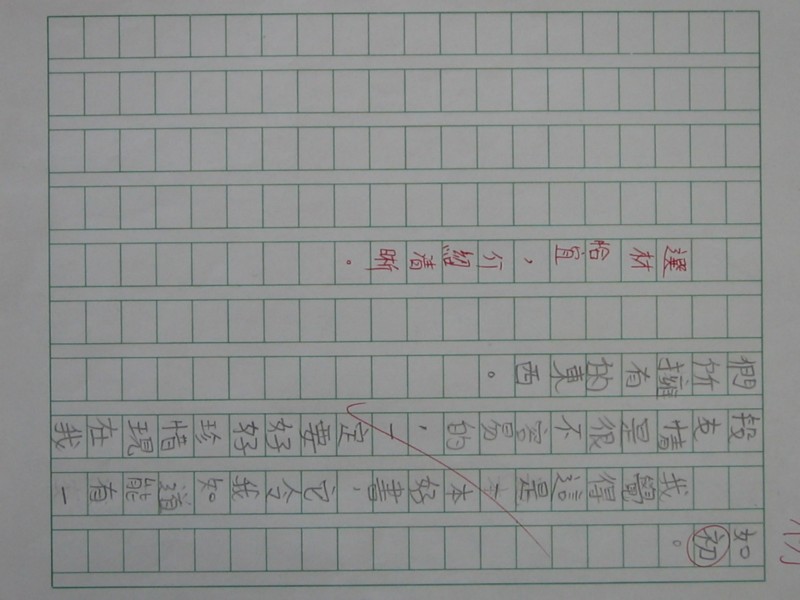 如初。
我覺得這是一本好書，它令我知道能有一
段友情是很不容易的，一定要好好珍惜現在我
們所擁有的東西。
選材恰宜，介紹清晰。